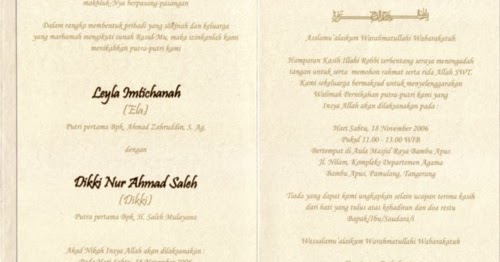 makhluk-Nya berpasang-pasangan
Dalam rangka membentuk pribadi yang sakinah dan keluarga
yang marhamah mengikuti sunah Rasul-Mu, maka izinkanlah kami
menikahkan putra-putri kami
Leyla Imtichanah
(Ela)
Putri pertama Bpk, Ahmad Zahruddin, S. Ag.
dengan
Dikki Nur Ahmad Saleh
(Dikki)
Putra pertama Bpk, H. Saleh Mulayana
Akad Nikah Insya Allah akan dilaksanakan :
Assalamu'alaikum Warahmatullahi Wabarakatuh
Hamparan Kasih Illahi Robbi terbentang seraya menengadah
tangan untuk serta memohon rahmat serta rida Allah SWT.
Kami sekeluarga bermaksud untuk menyelenggarakan
Walimah Pernikahan putra-putri kami yang
Insya Allah akan dilaksanakan pada :
Hari Sabtu, 18 November 2006
Pukul 11.00 - 13.00 WIB
Bertempat di Aula Masjid Raya Bambu Apus
Jl. Nilam, Kompleks Departemen Agama
Bambu Apus, Pamulang, Tangerang
Tiada yang dapat kami ungkapkan selain ucapan terima kasih
dari hati yang tulus atas kehadiran dan doa restu
Bapak/Ibu/Saudara/i
Wassalamu'alaikum Warahmatullahi Wabarakatuh